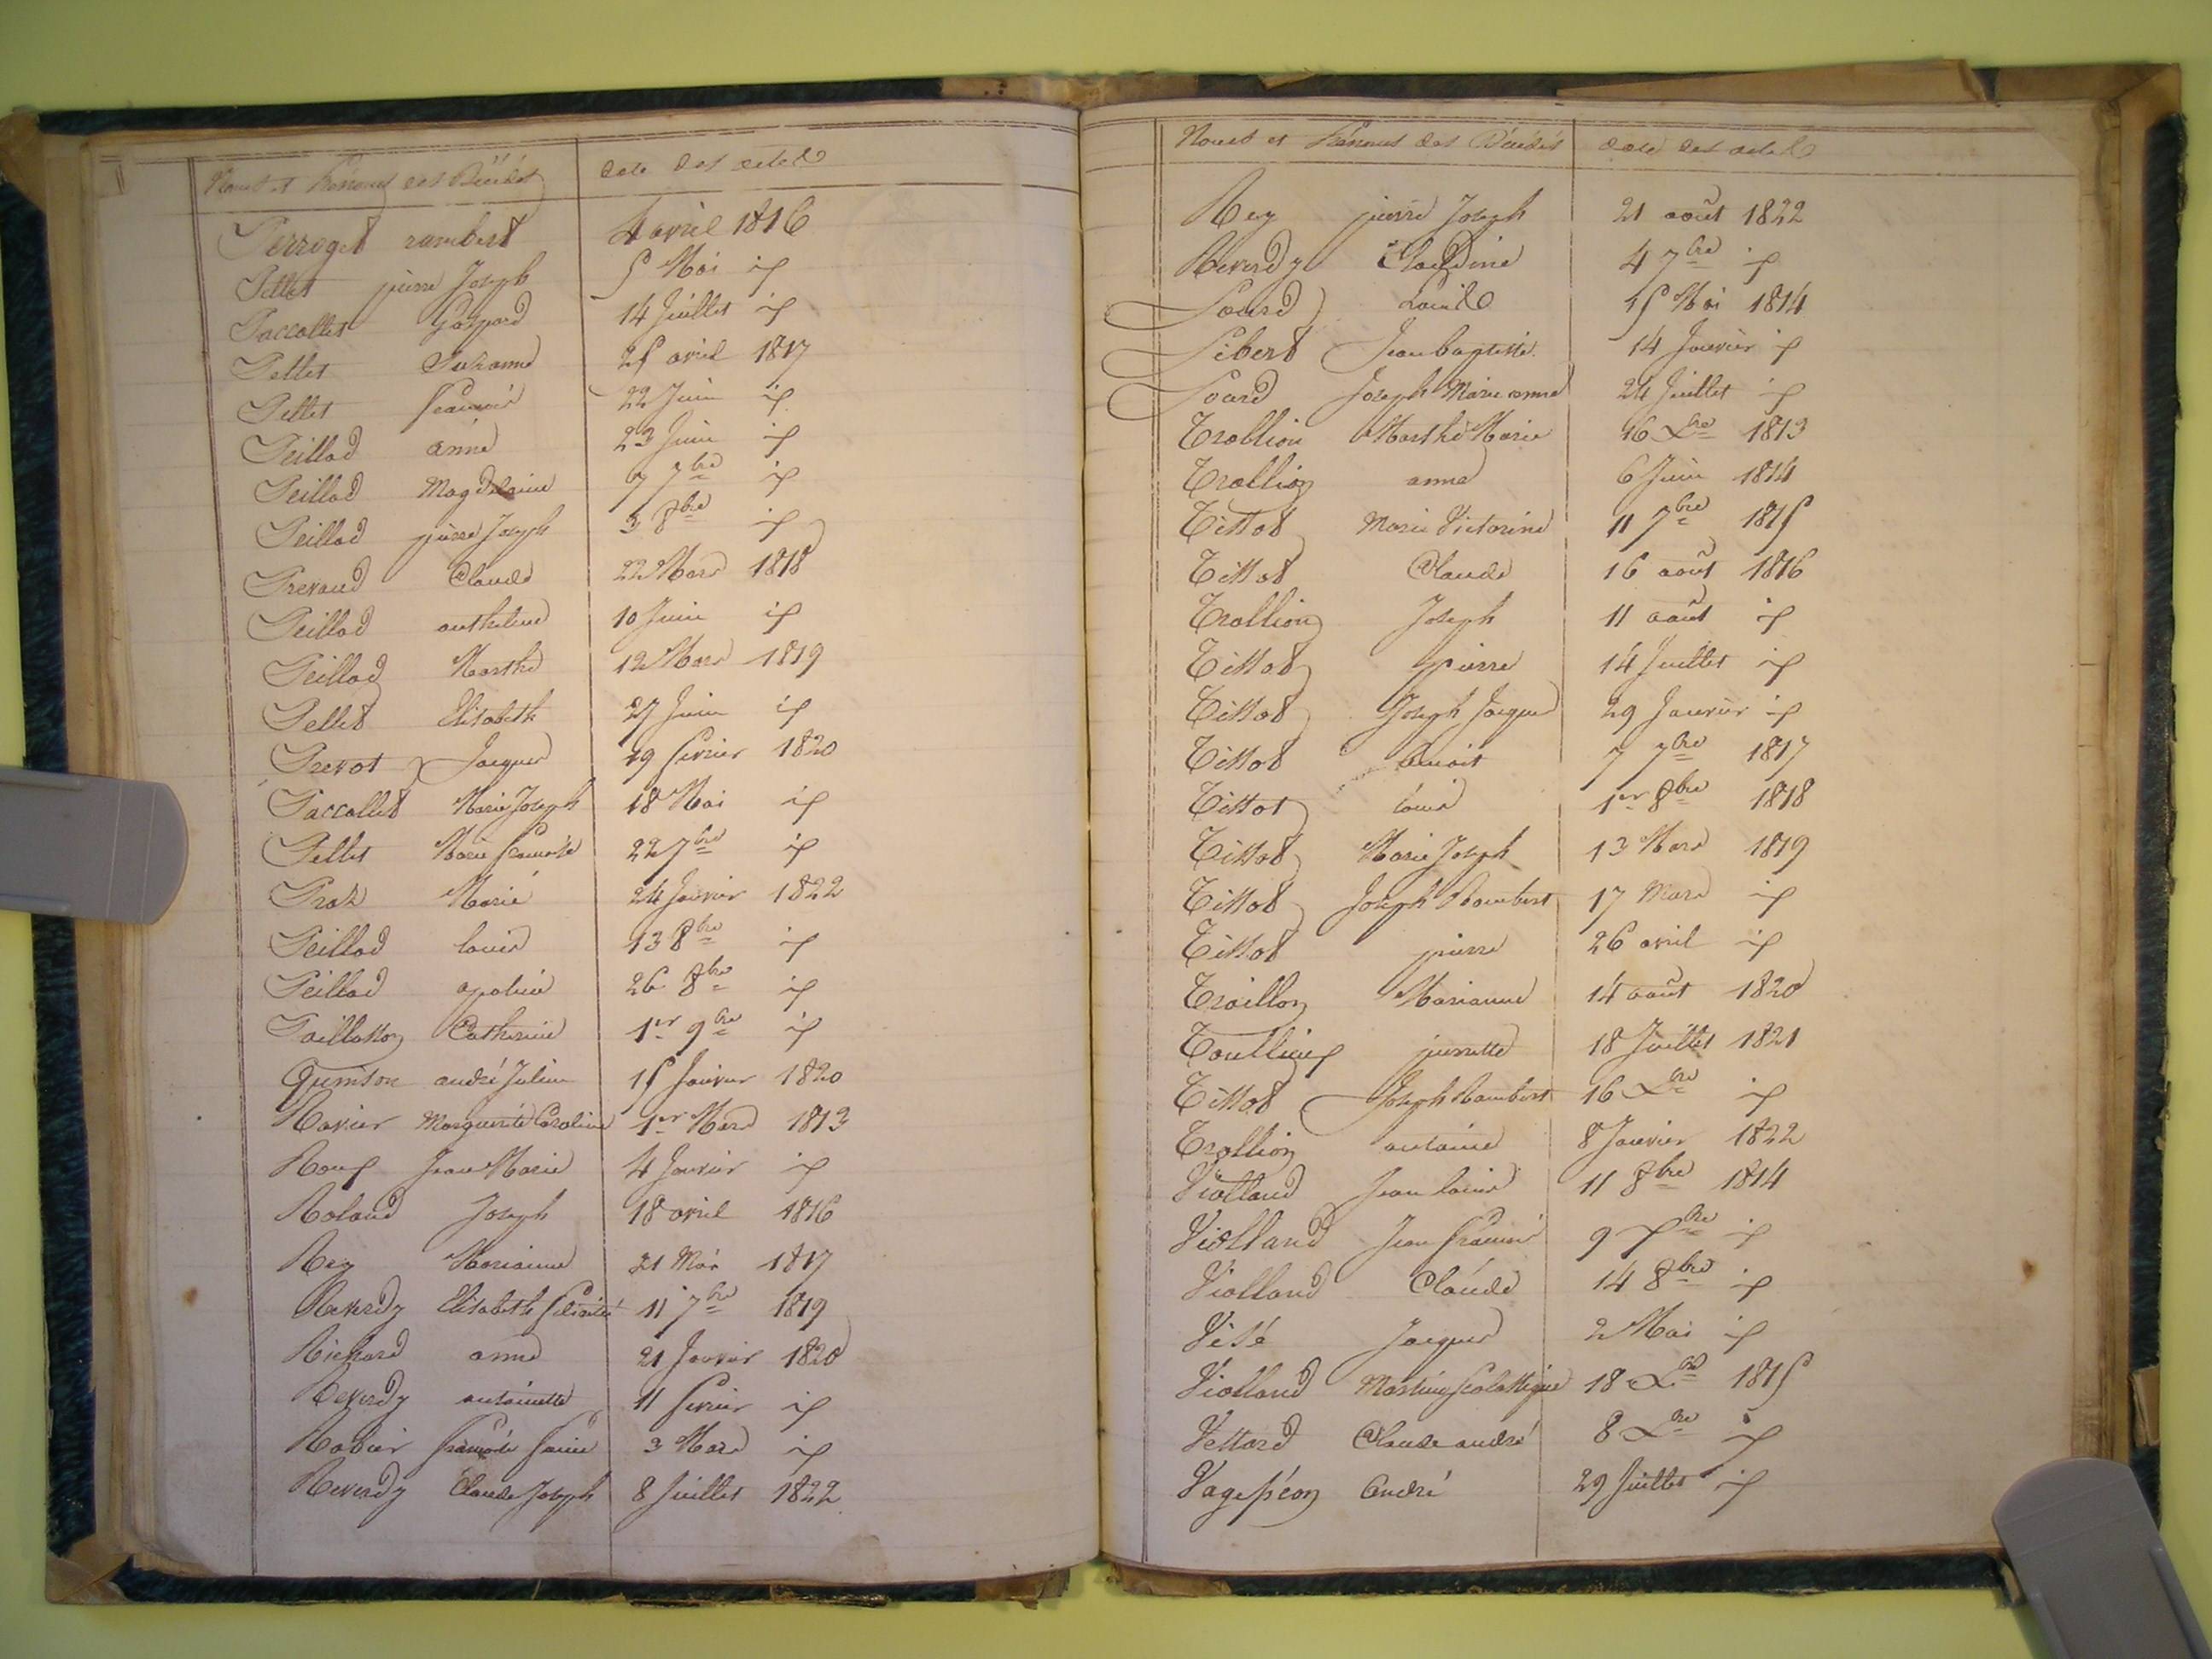 Noms et Prénoms des Décédés date des actes
Perroget rambert 4 avril 1816
Pettet pierre Joseph 5 Mai id
Paccallet Gaspard 14 Juillet id
Pettet Suzanne 25 avril 1817
Pettet francois 22 Juin id
Peillod anne 23 Juin id
Peillod Magdelaine 7 7bre id
Peillod pierre Joseph 3 8bre id
Prevaud Claude 22 Mars 1818
Peillod anthelme 10 Juin id
Peillod Marthe 12 Mars 1819
Pellet Elisabeth 27 Juin id
Prevot Jacques 19 fevrier 1820
Paccallet Marie Joseph 18 Mai id
Pettet Marie francoise 22 7bre id
Praz Marie 24 Janvier 1822
Peillod louis 13 8bre id
Peillod apolinie 26 8bre id
Paillasson Catherine 1er 9bre id
Quinson andré Julien 15 Janvier 1820
Ravier Marguerite Caroline 1er Mars 1813
Roux Jean Marie 4 Janvier id
Roland Joseph 18 avril 1816
Rey Marianne 21 Mai 1817
Reverdy Elisabeth felicité 11 7bre 1819
Richard anne 21 Janvier 1820
Reverdy antoinette 11 fevrier id
Francoise 3 Mars id
Reverdy Claude Joseph 8 Juillet 1822
Noms et Prénoms des Décédés date des actes
Rey pierre Joseph 21 août 1822
Reverdy Claudine 4 7bre id
Soard louise 15 Mai 1814
Sibert Jean baptiste 14 Janvier id
Soard Joseph Marie anne 24 Juillet id
Trollion Marthe Marie 16 Xbre 1813
Trollion anne 6 Juin 1814
Tissot Marie Victorine 11 7bre 1815
Tissot Claude 16 août 1816
Trollion Joseph 11 août id
Tissot pierre 14 Juillet id
Tissot Joseph Jacques 29 Janvier id
Tissot benoit 7 7bre 1817
Tissot louis 1er 8bre 1818
Tissot Marie Joseph 13 Mars 1819
Tissot Joseph Rambert 17 Mars id
Tissot pierre 26 avril id
Traillon Marianne 14 août 1820
Toullieux pierrette 18 Juillet 1821
Tissot Joseph Rambert 16 Xbre id
Trollion antoine 8 Janvier 1822
Violland Jean louis 11 8bre 1814
Violland Jean francois 9 bre id
Violland Claude 14 8bre id
Jacques 2 Mai id
Violland Martine Scolastique 18 Xbre 1815
Vettard Claude andré 8 Xbre id
Vagepéon André 29 Juillet id